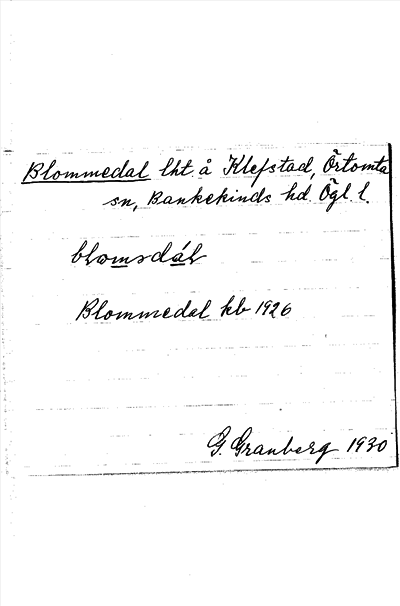 Blommedal lht å Klefstad, Örtomta
sn, Bankekinds hd. Ögl. l.
blomsdál
Blommedal kb 1926
G. Granberg 1930